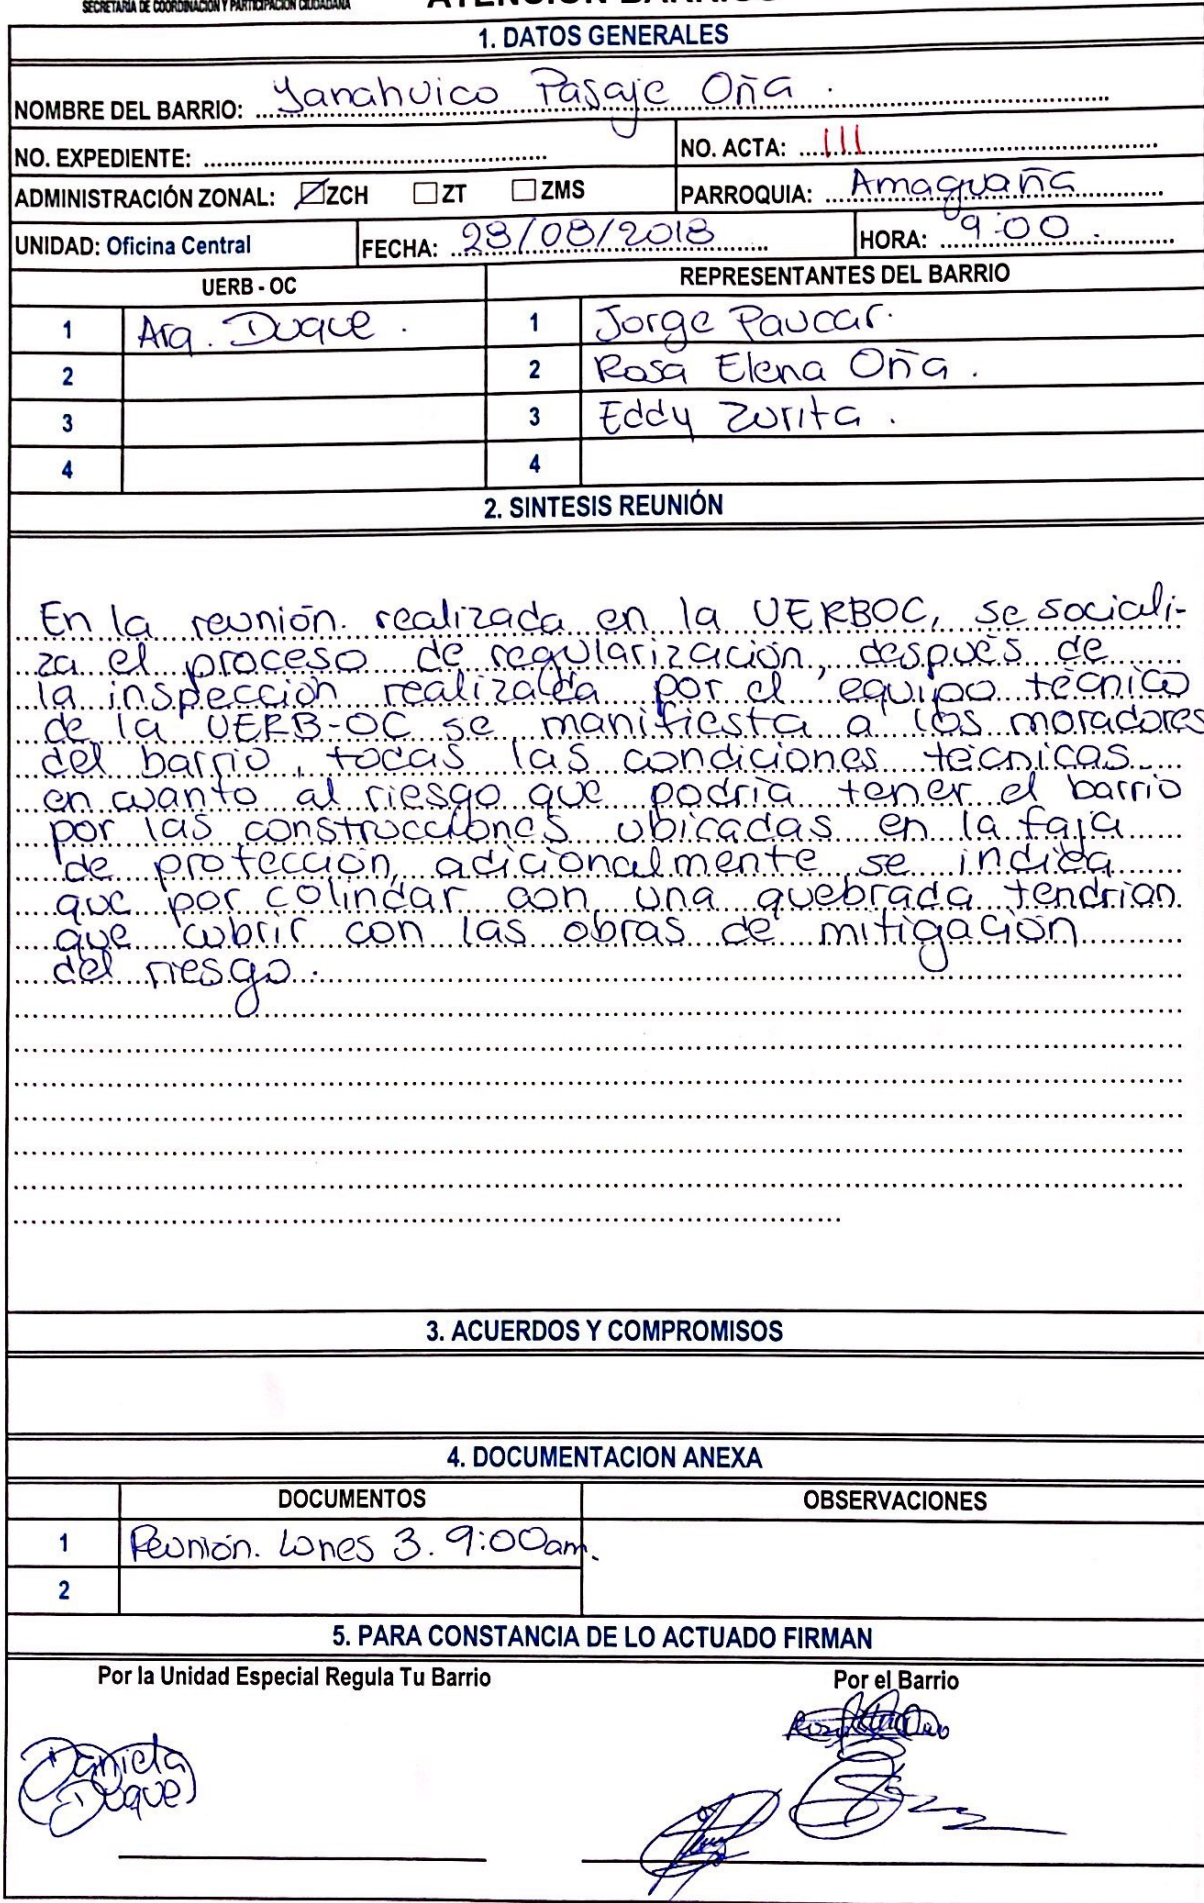 SECRETARÍA DE COORDINACIÓN Y PARTICIPACIÓN CIUDADANA
1. DATOS GENERALES
NOMBRE DEL BARRIO: Yanahuico Pasaje Oña.
NO. EXPEDIENTE: NO. ACTA: 111
ADMINISTRACIÓN ZONAL: ZCH ZT ZMS PARROQUIA: Amaguaña
UNIDAD: Oficina Central FECHA: 28/08/2018 HORA: 9:00.
UERB - OC REPRESENTANTES DEL BARRIO
1 Arq. Duque. 1 Jorge Paucar.
2 2 Rosa Elena Oña.
3 3 Eddy Zurita.
4 4
2. SINTESIS REUNIÓN
En la reunión. realizada en la UERBOC, se sociali-
za el proceso de regularización, después de
la inspección realizada por el equipo técnico
de la UERB-OC se manifiesta a los moradores
del barrio, todas las condiciones técnicas
en cuanto al riesgo que podría tener el barrio
por las construcciones ubicadas en la faja
de protección, adicionalmente se indica
que por colindar con una quebrada tendrían
que cubrir con las obras de mitigación
del riesgo.
3. ACUERDOS Y COMPROMISOS
4. DOCUMENTACION ANEXA
DOCUMENTOS OBSERVACIONES
1 Reunión. Lunes 3. 9:00am.
2
5. PARA CONSTANCIA DE LO ACTUADO FIRMAN
Por la Unidad Especial Regula Tu Barrio Por el Barrio
Daniela
Duque